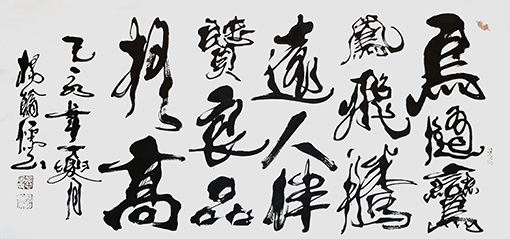 鳥隨鸞
鳳飛騰
遠人伴
賢良品
格高
亥年夏月
楊